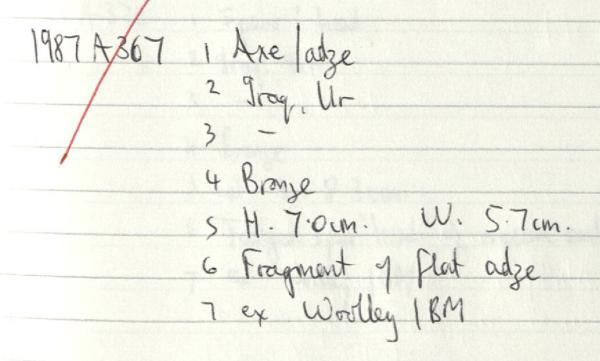 1987 A367 1 Axe/adze
2 Iraq, Ur
3 –
4 Bronze
5 H. 7.0cm. W. 5.7cm.
6 Fragment of flat adze
7 ex Woolley / BM